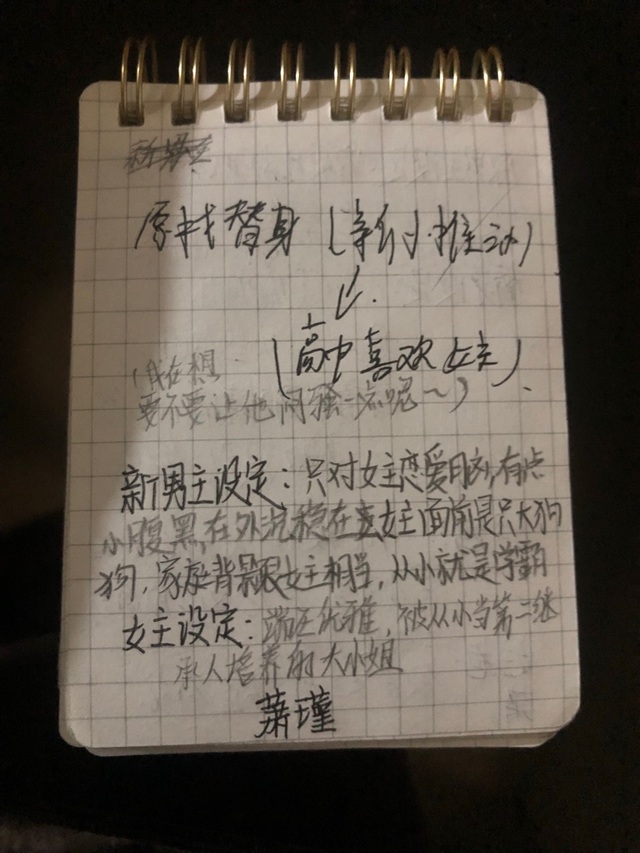 原找替身（等价推动）
↓
（高中喜欢女主）
（我在想
要不要让他闷骚一点呢～）
新男主设定：只对女主恋爱脑，有点
小腹黑，在外沉稳在女主面前是只大狗
狗，家庭背景跟女主相当，从小就是学霸
女主设定：端庄优雅，被从小当第二继
承人培养的大小姐
萧瑾